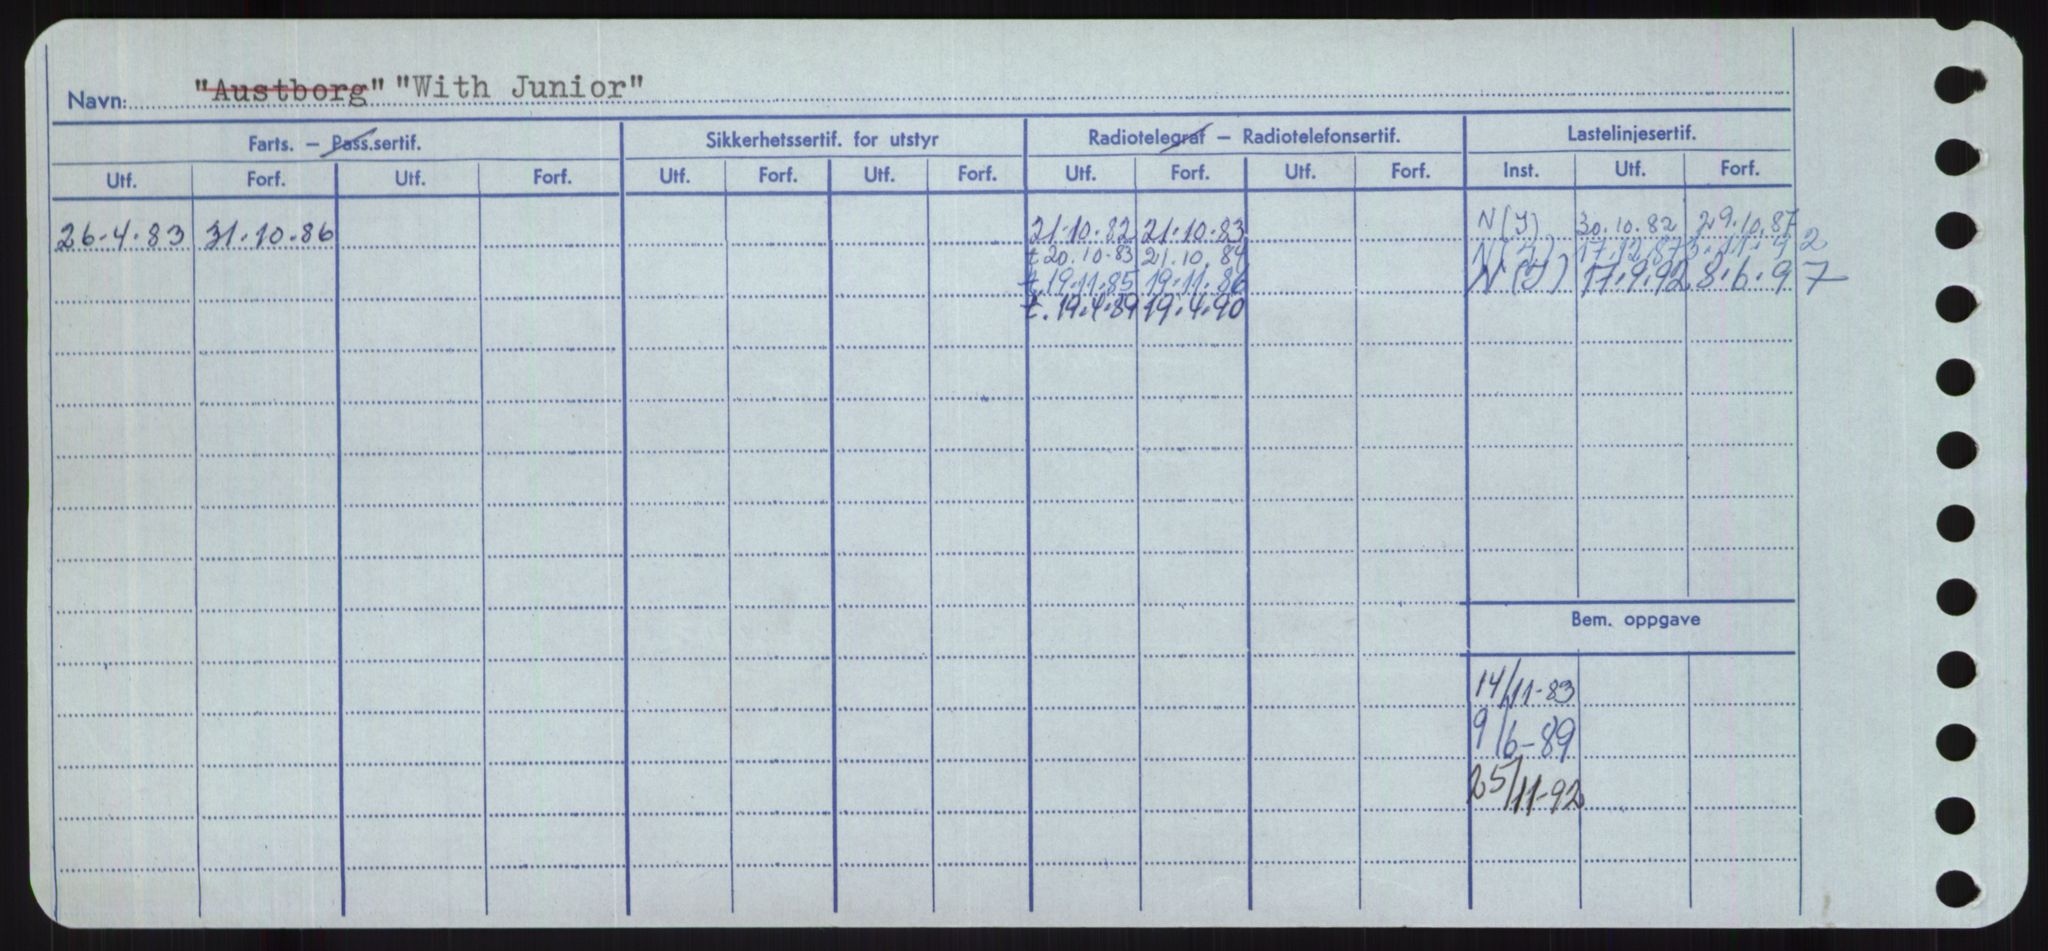 Navn: "Austborg" "With Junior"
Farts. — Pass.sertif. Sikkerhetssertif. for utstyr Radiotelegraf — Radiotelefonsertif. Lastelinjesertif.
Utf. Forf. Utf. Forf. Utf. Forf. Utf. Forf. Utf. Forf. Utf. Forf. Inst. Utf. Forf.
26.4.83 31.10.86 21.10.82 21.10.83 N(I) 30.10.82 29.10.87
t 20.10.83 21.10.84 N(I) 17.12.87
t.19.11.85 19.11.86 N(I) 17.9.92 8.6.97
t.19.4.89 19.4.90
Bem. oppgave
14/11-83
9/6-89
25/11-92